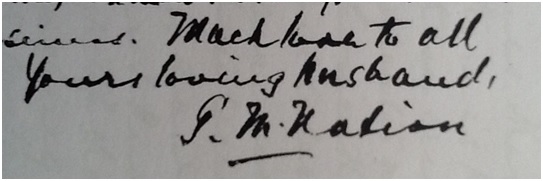 since. Much love to all
Yours loving husband,
G. M. Nation